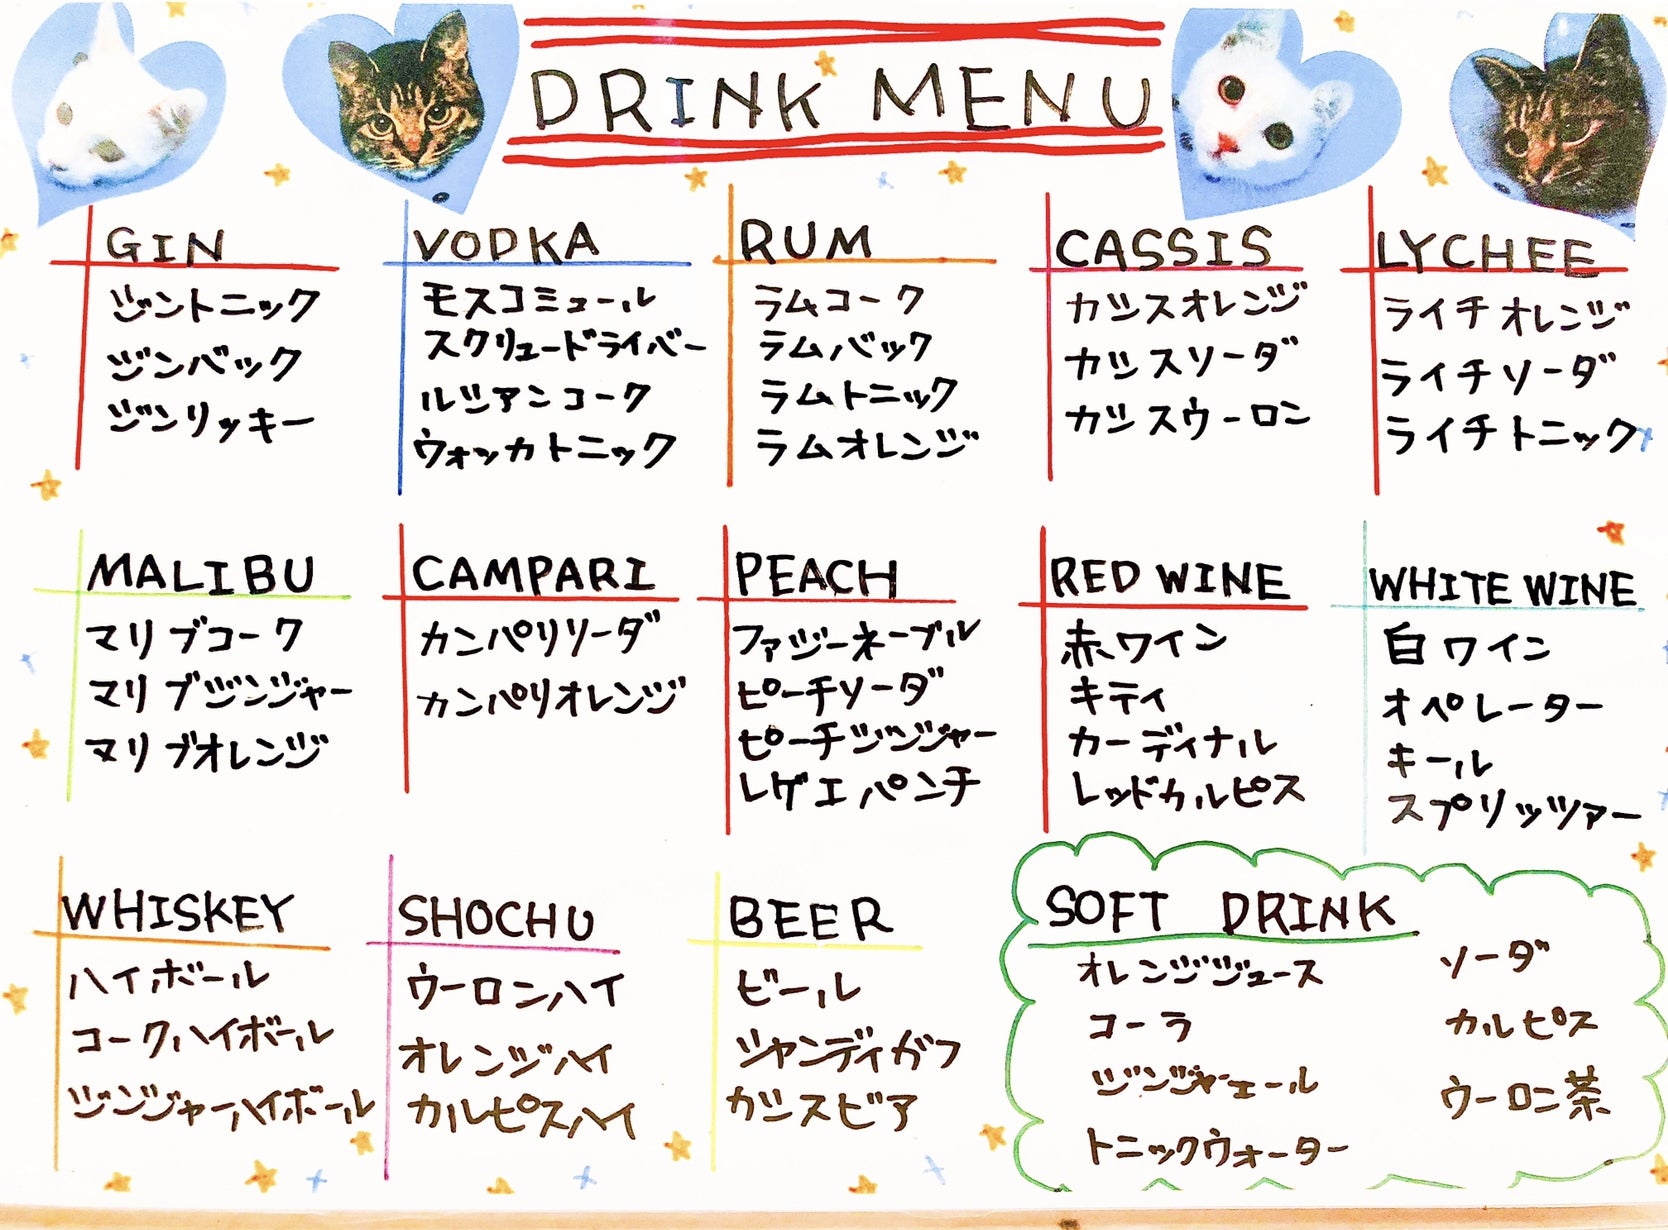 DRINK MENU
GIN
ジントニック
ジンバック
ジンリッキー
VODKA
モスコミュール
スクリュードライバー
ルシアンコーク
ウォッカトニック
RUM
ラムコーク
ラムバック
ラムトニック
ラムオレンジ
CASSIS
カシスオレンジ
カシスソーダ
カシスウーロン
LYCHEE
ライチオレンジ
ライチソーダ
ライチトニック
MALIBU
マリブコーク
マリブジンジャー
マリブオレンジ
CAMPARI
カンパリソーダ
カンパリオレンジ
PEACH
ファジーネーブル
ピーチソーダ
ピーチジンジャー
レゲエパンチ
RED WINE
赤ワイン
キティ
カーディナル
レッドカルピス
WHITE WINE
白ワイン
オペレーター
キール
スプリッツァー
WHISKEY
ハイボール
コークハイボール
ジンジャーハイボール
SHOCHU
ウーロンハイ
オレンジハイ
カルピスハイ
BEER
ビール
シャンディガフ
カシスビア
SOFT DRINK
オレンジジュース
コーラ
ジンジャーエール
トニックウォーター
ソーダ
カルピス
ウーロン茶